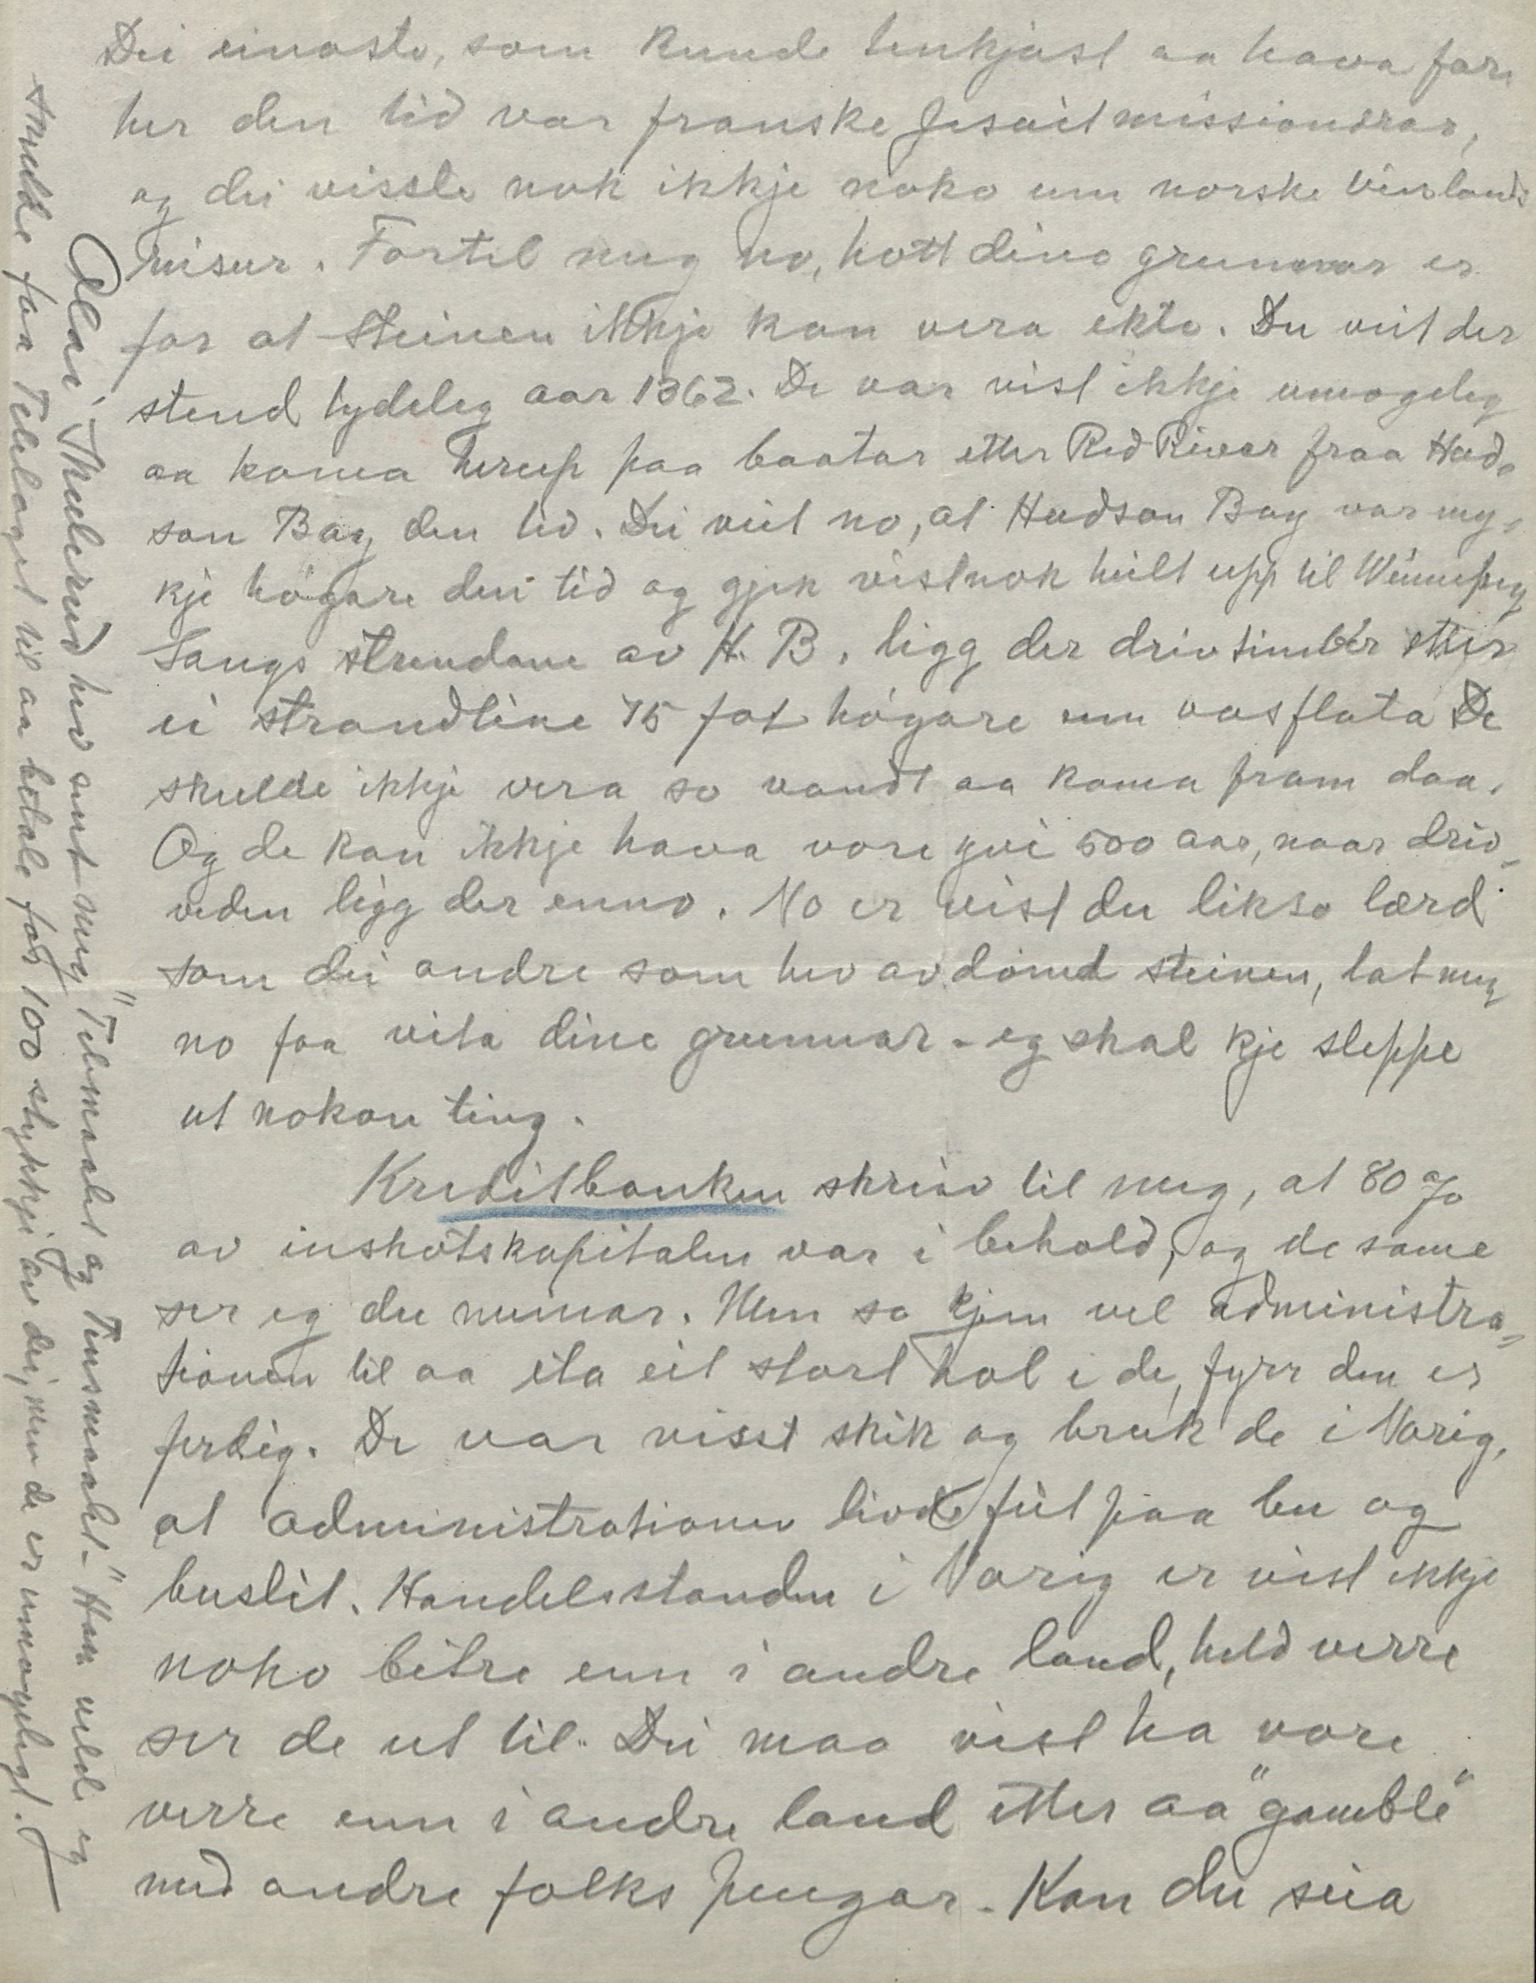 Dei einaste, som kunde tenkjast aa hava fare
her den tid var franske Jesuitmissionærar,
og dei visste nok ikkje noko um norske Vinlands
reisur. Fortel meg no, hott dine grunnar er
for at steinen ikkje kan vera ekte. Du veit der
stend tydeleg aar 1362. De var vist ikkje umogeleg
aa koma herup paa baatar etter Red River fraa Hud-
son Bay den tid. Dei veit no, at Hudson Bay var my-
kje högare den tid og gjek vistnok heilt upp til Winnipeg
Langs strendane av H. B. ligg der drivtimber etter
ei strandline 75 fot högare enn vasflata De
skulde ikkje vera so vandt aa koma fram daa.
Og de kan ikkje hava vore yvi 500 aar, naar driv-
veden ligg der enno. No er vist du likso lærd
som dei andre som hev avdömd steinen, lat meg
no faa vita dine grunnar - eg skal kje sleppe
ut nokon ting.
Kreditbanken skriv til meg, at 80 %
av inskotskapitalen var i behold, og de same
ser eg du meinar. Men so kjem vel administra-
tionen til aa eta eit stort hol i de, fyrr den er
ferdig. De var visst skik og bruk de i Norig,
at administrationen livde feit paa bu og
buslit. Handelsstanden i Norig er vist ikkje
noko betre enn i andre land, held verre
ser de ut til. Dei maa vist ha vore
verre enn i andre land etter aa "gamble"
med andre folks pengar. Kan du seia
Olai Thulerud hev sent meg "Telemaalet og Tinsmaalet". Han vilde eg
skulde faa Telelaget til aa betale for 100 stykkje av dei, men de er umogelegt.